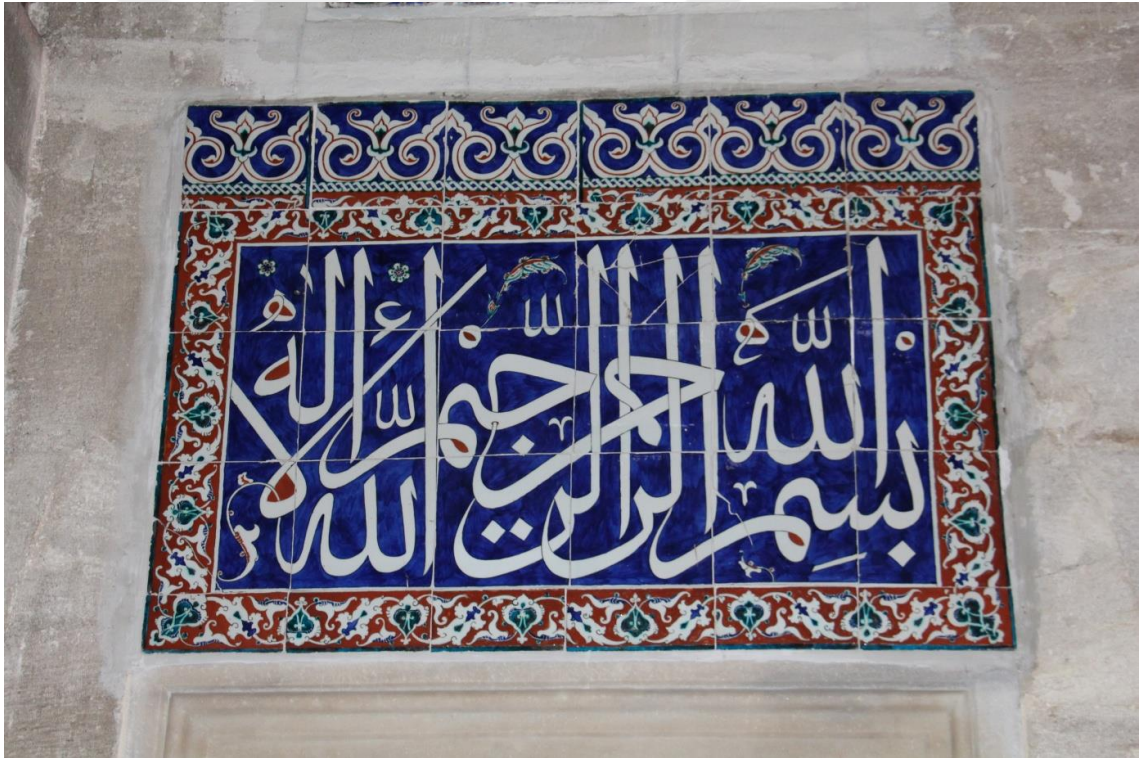 بِسْمِ اللّٰه الرحمن الرحيم اللّٰه لا اله الا